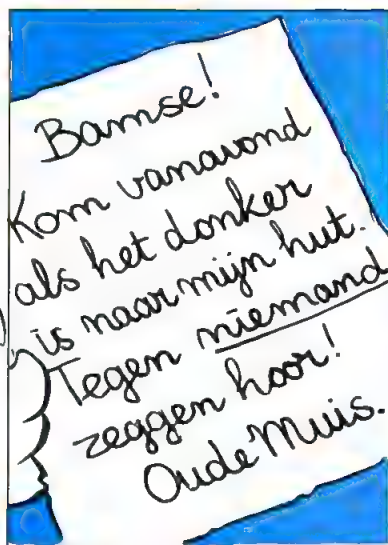 Bamse!
Kom vanavond
als het donker
is naar mijn hut.
Tegen niemand
zeggen hoor!
Oude Muis.